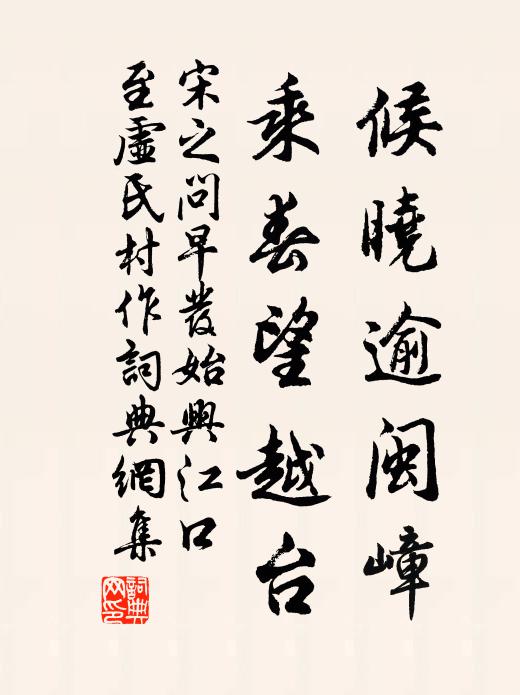 候曉逾閩嶂
乘春望越台
宋之問早發始興江口
至虛氏村作詞典網集
詞典
网印